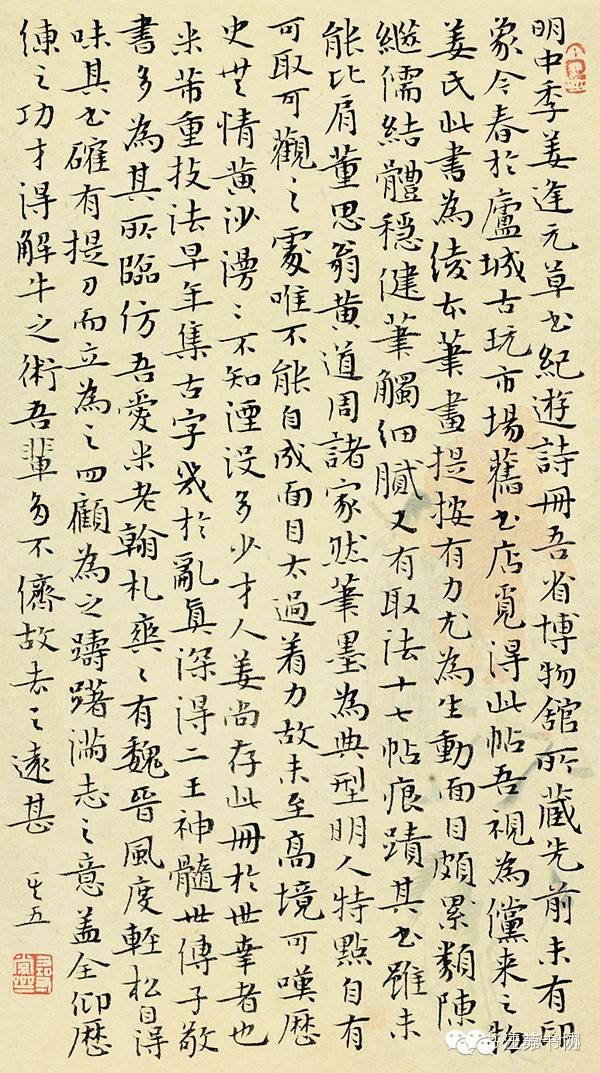 明中季姜逢元草书紀遊詩冊吾省博物舘所蔵先前未有印
象今春於廬城古玩市場舊书店覓得此帖吾視為儻来之物
姜氏此書為绫本筆畫提按有力尤為生動面目頗累類陳
繼儒結體穩健筆觸细膩又有取法十七帖痕蹟其书雖未
能比肩董思翁黄道周諸家然筆墨為典型明人特點自有
可取可觀之處唯不能自成面目太過着力故未至高境可嘆歷
史無情黄沙漫漫不知湮没多少才人姜尚存此冊於世幸者也
米芾重技法早年集古字幾於亂真深得二王神髓世傳子敬
書多為其所臨仿吾愛米老翰札奕奕有魏晉風度輕松自得
味其书確有提刀而立為之四顧為之躊躇滿志之意盖全仰歷
練之功才得解牛之術吾輩多不儕故去之遠甚